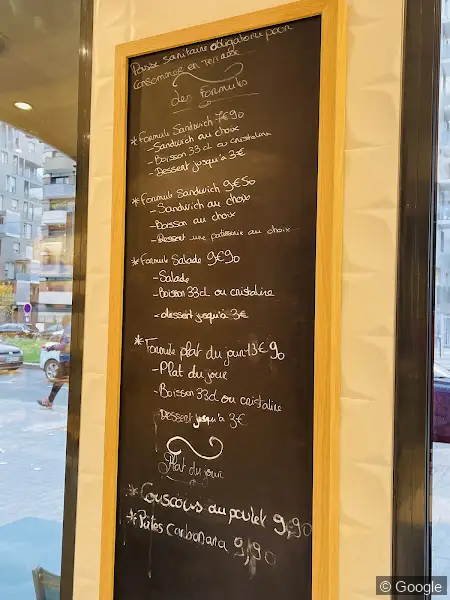 Passe sanitaire obligatoire pour
consommer en terrasse
Les Formules
* Formule Sandwich 7€90
- Sandwich au choix
- Boisson 33cl ou cristaline
- Dessert jusqu'à 3€
* Formule Sandwich 9€50
- Sandwich au choix
- Boisson au choix
- Dessert une patisserie au choix
* Formule Salade 9€90
- Salade
- Boisson 33cl ou cristaline
- dessert jusqu'à 3€
* Formule plat du jour 13€90
- Plat du jour
- Boisson 33cl ou cristaline
- Dessert jusqu'à 3€
Plat du jour
* Couscous au poulet 9,90
* Pâtes Carbonara 9,90
© Google